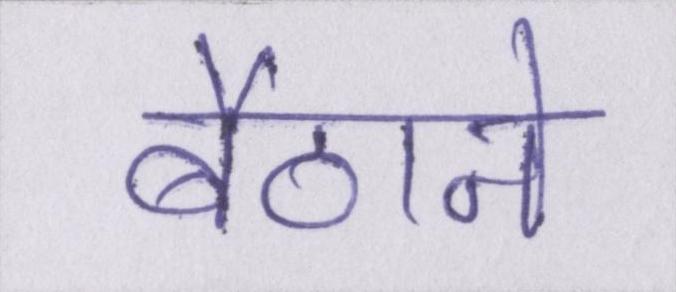 बैठाने